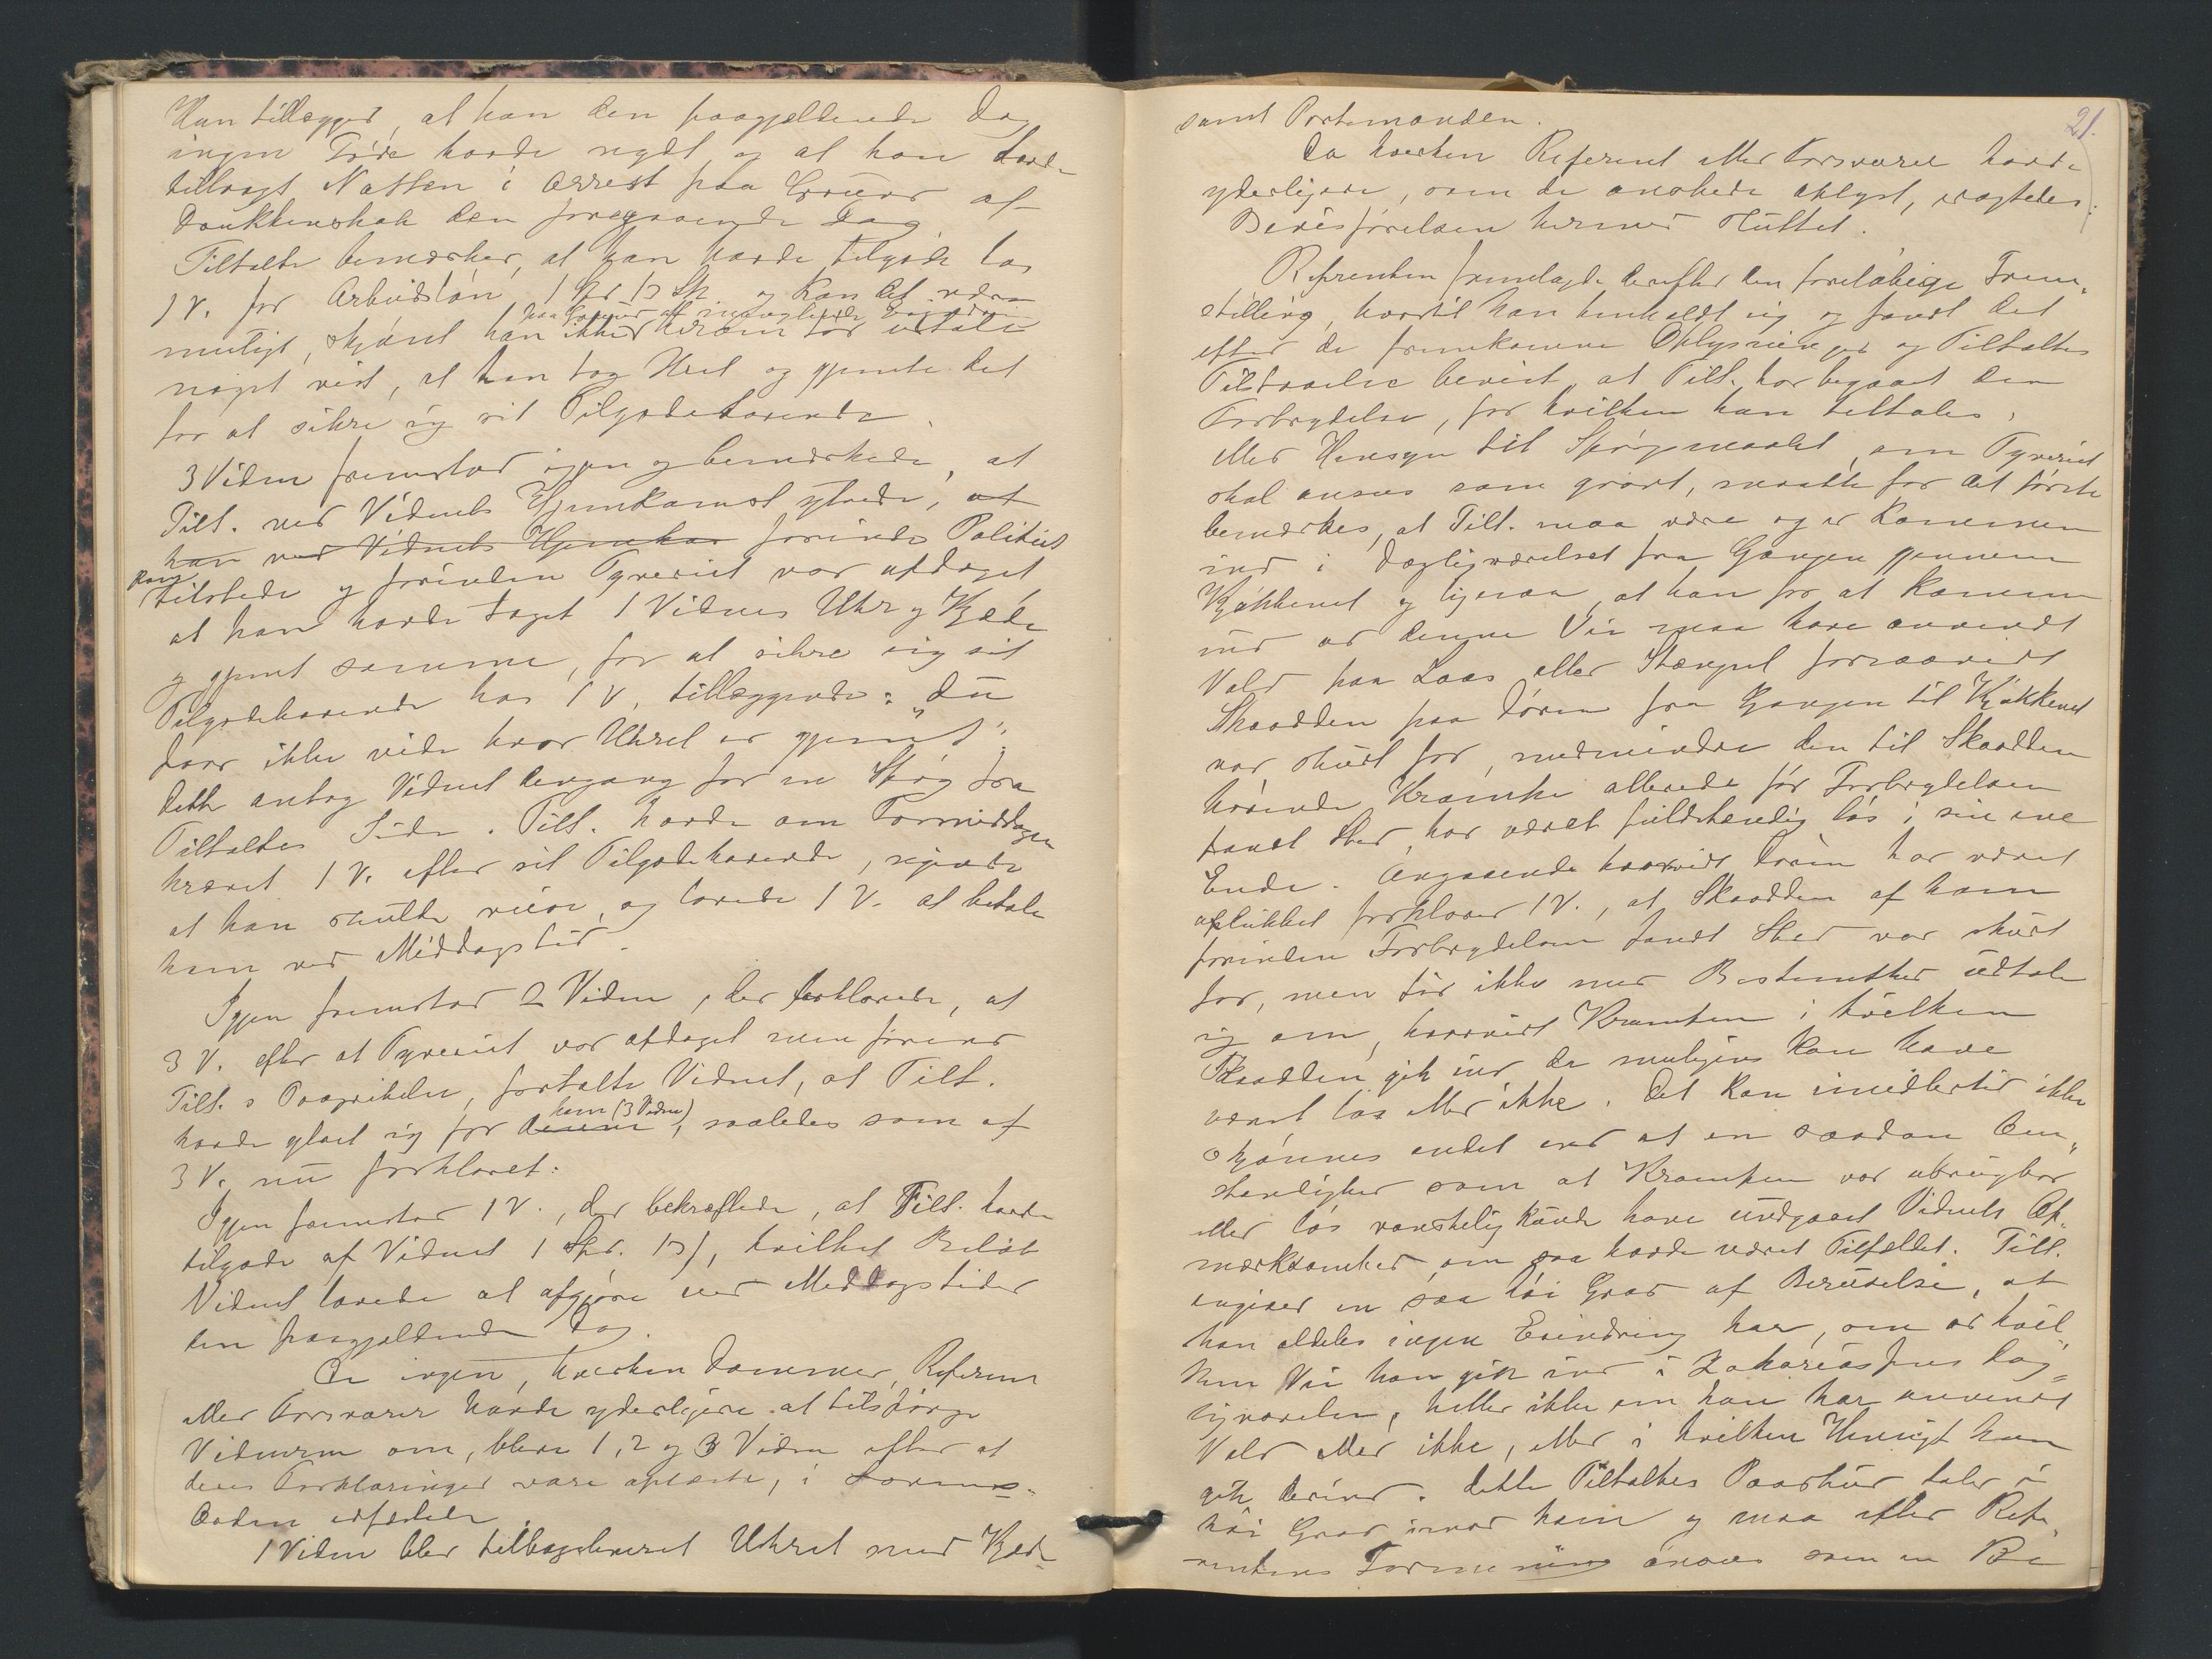 Han tillægger, at han den paagjældende Dag
ingen Föde havde nydt, og at han havde
tilbragt Natten i Arrest paa Grund af
Drukkenskab den foregaaende Dag.
Tiltalte bemærker, at han havde tilgode hos
1 V. for Arbeidslön 1 Spd 13 Sk. og kan det være
paa Grund af mangelende Erindring
muligt, skjönt han ikke herom tör udtale
noget vist, at han tog Uhret og gjemte det
for at sikre sig sit Tilgodehavende.
3 Vidne fremstod igjen og bemærkede, at
Tilt. ved Vidnets Hjemkomst ytrede, at
han ved Vidnets Hjemkom förend Politiet
kom
tilstede og forinden Tyveriet var opdaget
at han havde taget 1 Vidnes Uhr og Kjæde
og gjemt samme, for at sikre sig sit
Tilgodehavende hos 1 V, tillæggende: „Du
faar ikke vide hvor Uhret er gjemt".
Dette antog Vidnet dengang for en Spög fra
Tiltaltes Side. Tilt. havde om Formiddagen
krævet 1 V. efter sit Tilgodehavende, sigende
at han skulde reise, og lovede 1 V. at betale
ham ved Middagstid.
Igjen fremstod 2 Vidne, der forklarede, at
3 V. efter at Tyveriet var opdaget men förend
Tilt.s Paagribelse, fortalte Vidnet, at Tilt.
ham (3 Vidne)
havde ytret sig for denne, saaledes som af
3 V. nu forklaret.
Igjen fremstod 1 V., der bekræftede, at Tilt. havde
tilgode af Vidnet 1 Spd. 13 ſ, hvilket Belöb
Vidnet lovede at afgjöre ved Middagstider
den paagjældende Dag.
Da ingen, hverken Dommer, Referent
eller Forsvarer havde yderligere at tilspörge
Vidnerne om, bleve 1, 2 og 3 Vidne efter at
deres Forklaringer vare oplæste, i Lovens
Orden
1 Vidne blev tilbageleveret Uhret med Kjæde
21.
samt Portemonæen.
Da hverken Referent eller Forsvarer havde
yderligere, som de önskede oplyst, ansagtedes
Bevisförelsen hermed sluttet.
Referenten fremlagde derefter den foreløbige Frem„
stilling, hvortil han henholdt sig og fandt det
efter de fremkomne Oplysninger og Tiltaltes
Tilstaaelse bevist, at Tilt. har begaaet den
Forbrydelse, for hvilken han tiltales.
Med Hensyn til Spörgsmaalet, om Tyveriet
skal ansees som grovt, maatte for det förste
bemærkes, at Tilt. maa være og er kommen
ind i Dagligværelset fra Gangen gjennem
Kjökkenet og ligesaa, at han for at komme
ind ad denne Vei maa have anvendt
Vold paa Laas eller Stængsel forsaavidt
Skaadden paa Dören fra Gangen til Kjökkenet
var skudt for, medmindre den til Skaadden
hörende Krampe allerede för Forbrydelsen
fandt Sted, har været fuldstændig lös i sin ene
Ende. Angaaende hvorvidt Dören har været
oplukket forklarer 1 V., at Skaadden af ham
forinden Forbrydelsen fandt Sted var skudt
for, men tör ikke med Bestemthed udtale
sig om, hvorvidt Krampen i hvilken
Skaadden gik ind da muligens kan have
været lös eller ikke. Det kan imidlertid ikke
skjönnes andet end at en saadan Om„
stændighed som at Krampen var ubrugbar
eller lös vanskelig kunde have undgaaet Vidnets Op„
mærksomhed, om saa havde været Tilfældet. Tilt.
angiver en saa höi Grad af Beruselse, at
han aldeles ingen Erindring har, om ad hvil„
ken Vei han gik ind i Zakariasens Dag„
ligværelse, heller ikke om han har anvendt
Vold eller ikke, eller i hvilken Hensigt han
gik derind. Dette Tiltaltes Paaskud taler i
höi Grad imod ham og maa efter Refe„
rentens Formening ansees som en Be